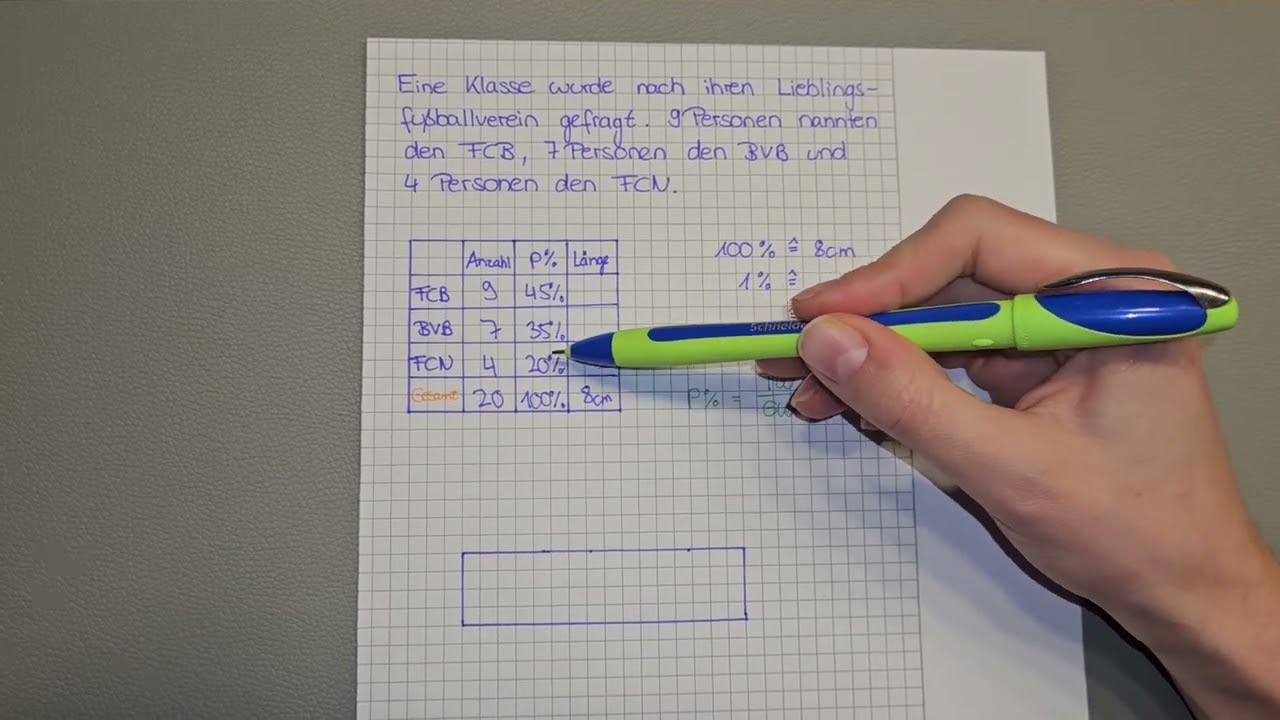 Eine Klasse wurde nach ihren Lieblings-
fußballverein gefragt. 9 Personen nannten
den FCB, 7 Personen den BVB und
4 Personen den FCN.
Anzahl P% Länge
FCB 9 45%
BVB 7 35%
FCN 4 20%
Gesamt 20 100% 8cm
100% ≙ 8cm
1% ≙
Schneide
P% =